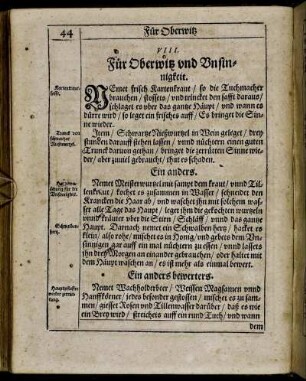 44
Für Oberwitz
VIII.
Für Oberwitz vnd Vnsin-
nigkeit.
NEmet frisch Kartenkraut / so die Tuchmacher
brauchen / stossets / vnd trincket den safft daraus /
schlaget es vber das gantze Häupt / vnd wann es
dürre wird / so leget ein frisches auff / Es bringet die Sin-
ne wieder.
Trunck von
schwartzer
Nieswurtzel.
Item / Schwartze Nieswurtzel in Wein geleget / drey
stunden darauff stehen lassen / vnnd nüchtern einen guten
Trunck daruon gethan / bringet die zerrütten Sinne wie-
der / aber zuuiel gebraucht / thut es schaden.
Ein anders.
Nemet Meisterwurtzel sampt dem kraut / vnnd Til-
lenkraut / kochet es zusammen in Wasser / schneidet dem
Krancken die Haar ab / vnd waschet ihn mit solchem was-
ser alle Tage das Häupt / leget ihm die gekochten wurtzeln
vnnd kräuter vber die Stirn / Schläff / vnnd das gantze
Häupt. Darnach nemet ein Schwalben hertz / hacket es
klein / also rohe / mischet es in Honig / vnd gebets dem Vn-
sinnigen gar auff ein mal nüchtern zu essen / vnnd lassets
ihn drey Morgen an einander gebrauchen / oder haltet mit
dem Häupt waschen an / es ist mehr als einmal bewert.
Schwalben
hertz.
Ein anders bewertes.
Nemet Wachholderbeer / Weissen Magsamen vnnd
Hanffkörner / jedes besonder gestossen / mischet es zu sam-
men / giesset Rosen vnd Tillenwasser darüber / daß es wie
ein Brey wird / streichets auff ein rund Tuch / vnd wann
dem